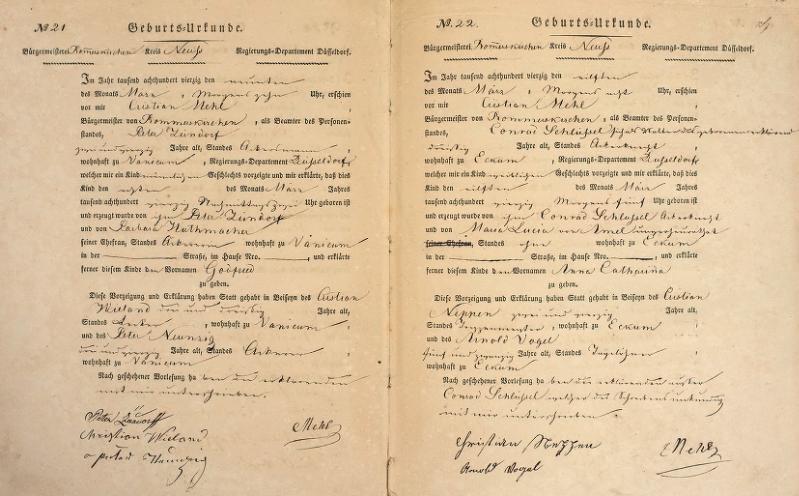 № 21
Geburts-Urkunde.
Bürgermeisterei Rommerskirchen Kreis Neuss Regierungs-Departement Düsseldorf.
Im Jahr tausend achthundert vierzig den neunten
des Monats März, Morgens zehn Uhr, erschien
vor mir Cristian Mehl
Bürgermeister von Rommerskirchen, als Beamter des Personen-
standes, Peter Zündorf
zwei und vierzig Jahre alt, Standes Ackersmann
wohnhaft zu Vanicum, Regierungs-Departement Düsseldorf
welcher mir ein Kind männlichen Geschlechts vorzeigte und mir erklärte, daß dies
Kind den achten des Monats März Jahres
tausend achthundert vierzig Nachmittags zwei Uhr geboren ist
und erzeugt wurde von ihm Peter Zündorf
und von Barbara Huthmacher
seiner Ehefrau, Standes Ackererin wohnhaft zu Vanicum
in der Straße, im Hause Nro. , und erklärte
ferner diesem Kinde den Vornamen Godfried
zu geben.
Diese Vorzeigung und Erklärung haben Statt gehabt in Beiseyn des Cristian
Wieland drei und dreißig Jahre alt,
Standes Ackerer, wohnhaft zu Vanicum
und des Peter
drei und vierzig Jahre alt, Standes Ackerer
wohnhaft zu Vanicum
Nach geschehener Vorlesung haben die erklärenden
mit mir unterschrieben.
Peter Zündorff
Christian Wieland
Mehl
№ 22.
Geburts-Urkunde.
Bürgermeisterei Rommerskirchen Kreis Neuss Regierungs-Departement Düsseldorf.
Im Jahr tausend achthundert vierzig den eilften
des Monats März Morgens acht Uhr, erschien
vor mir Cristian Mehl
Bürgermeister von Rommerskirchen, als Beamter des Personen-
standes, Conrad Schlüssel
dreißig Jahre alt, Standes Ackerknecht
wohnhaft zu Eckum, Regierungs-Departement Düsseldorf
welcher mir ein Kind weiblichen Geschlechts vorzeigte und mir erklärte, daß dies
Kind den eilften des Monats März Jahres
tausend achthundert vierzig Morgens fünf Uhr geboren ist
und erzeugt wurde von ihm Conrad Schlüssel Ackerknecht
und von Maria Lucia von Amel unverheirathet
seiner Ehefrau, Standes ohne wohnhaft zu Eckum
in der Straße, im Hause Nro. , und erklärte
ferner diesem Kinde den Vornamen Anna Catharina
zu geben.
Diese Vorzeigung und Erklärung haben Statt gehabt in Beiseyn des Cristian
Neppen zwei und vierzig Jahre alt,
Standes, wohnhaft zu Eckum
und des Arnold Vogel
fünf und zwanzig Jahre alt, Standes Tagelöhner
wohnhaft zu Eckum
Nach geschehener Vorlesung haben die erklärenden außer
Conrad Schlüssel welcher des Schreibens unkundig
mit mir unterschrieben.
Christian Neppen
Arnold Vogel
Mehl